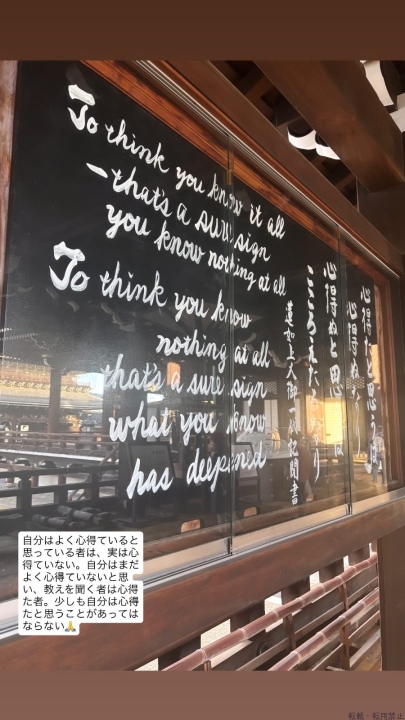 To think you know it all
-that's a sure sign
you know nothing at all
To think you know
nothing at all
that's a sure sign
what you know
has deepened
心得たと思うは
心得ぬなり
心得ぬと思うは
こころえたるなり
蓮如上人御一代記聞書
自分はよく心得ていると
思っている者は、実は心
得ていない。自分はまだ
よく心得ていないと思
い、教えを聞く者は心得
た者。少しも自分は心得
たと思うことがあっては
ならない🙏
転載・転用禁止